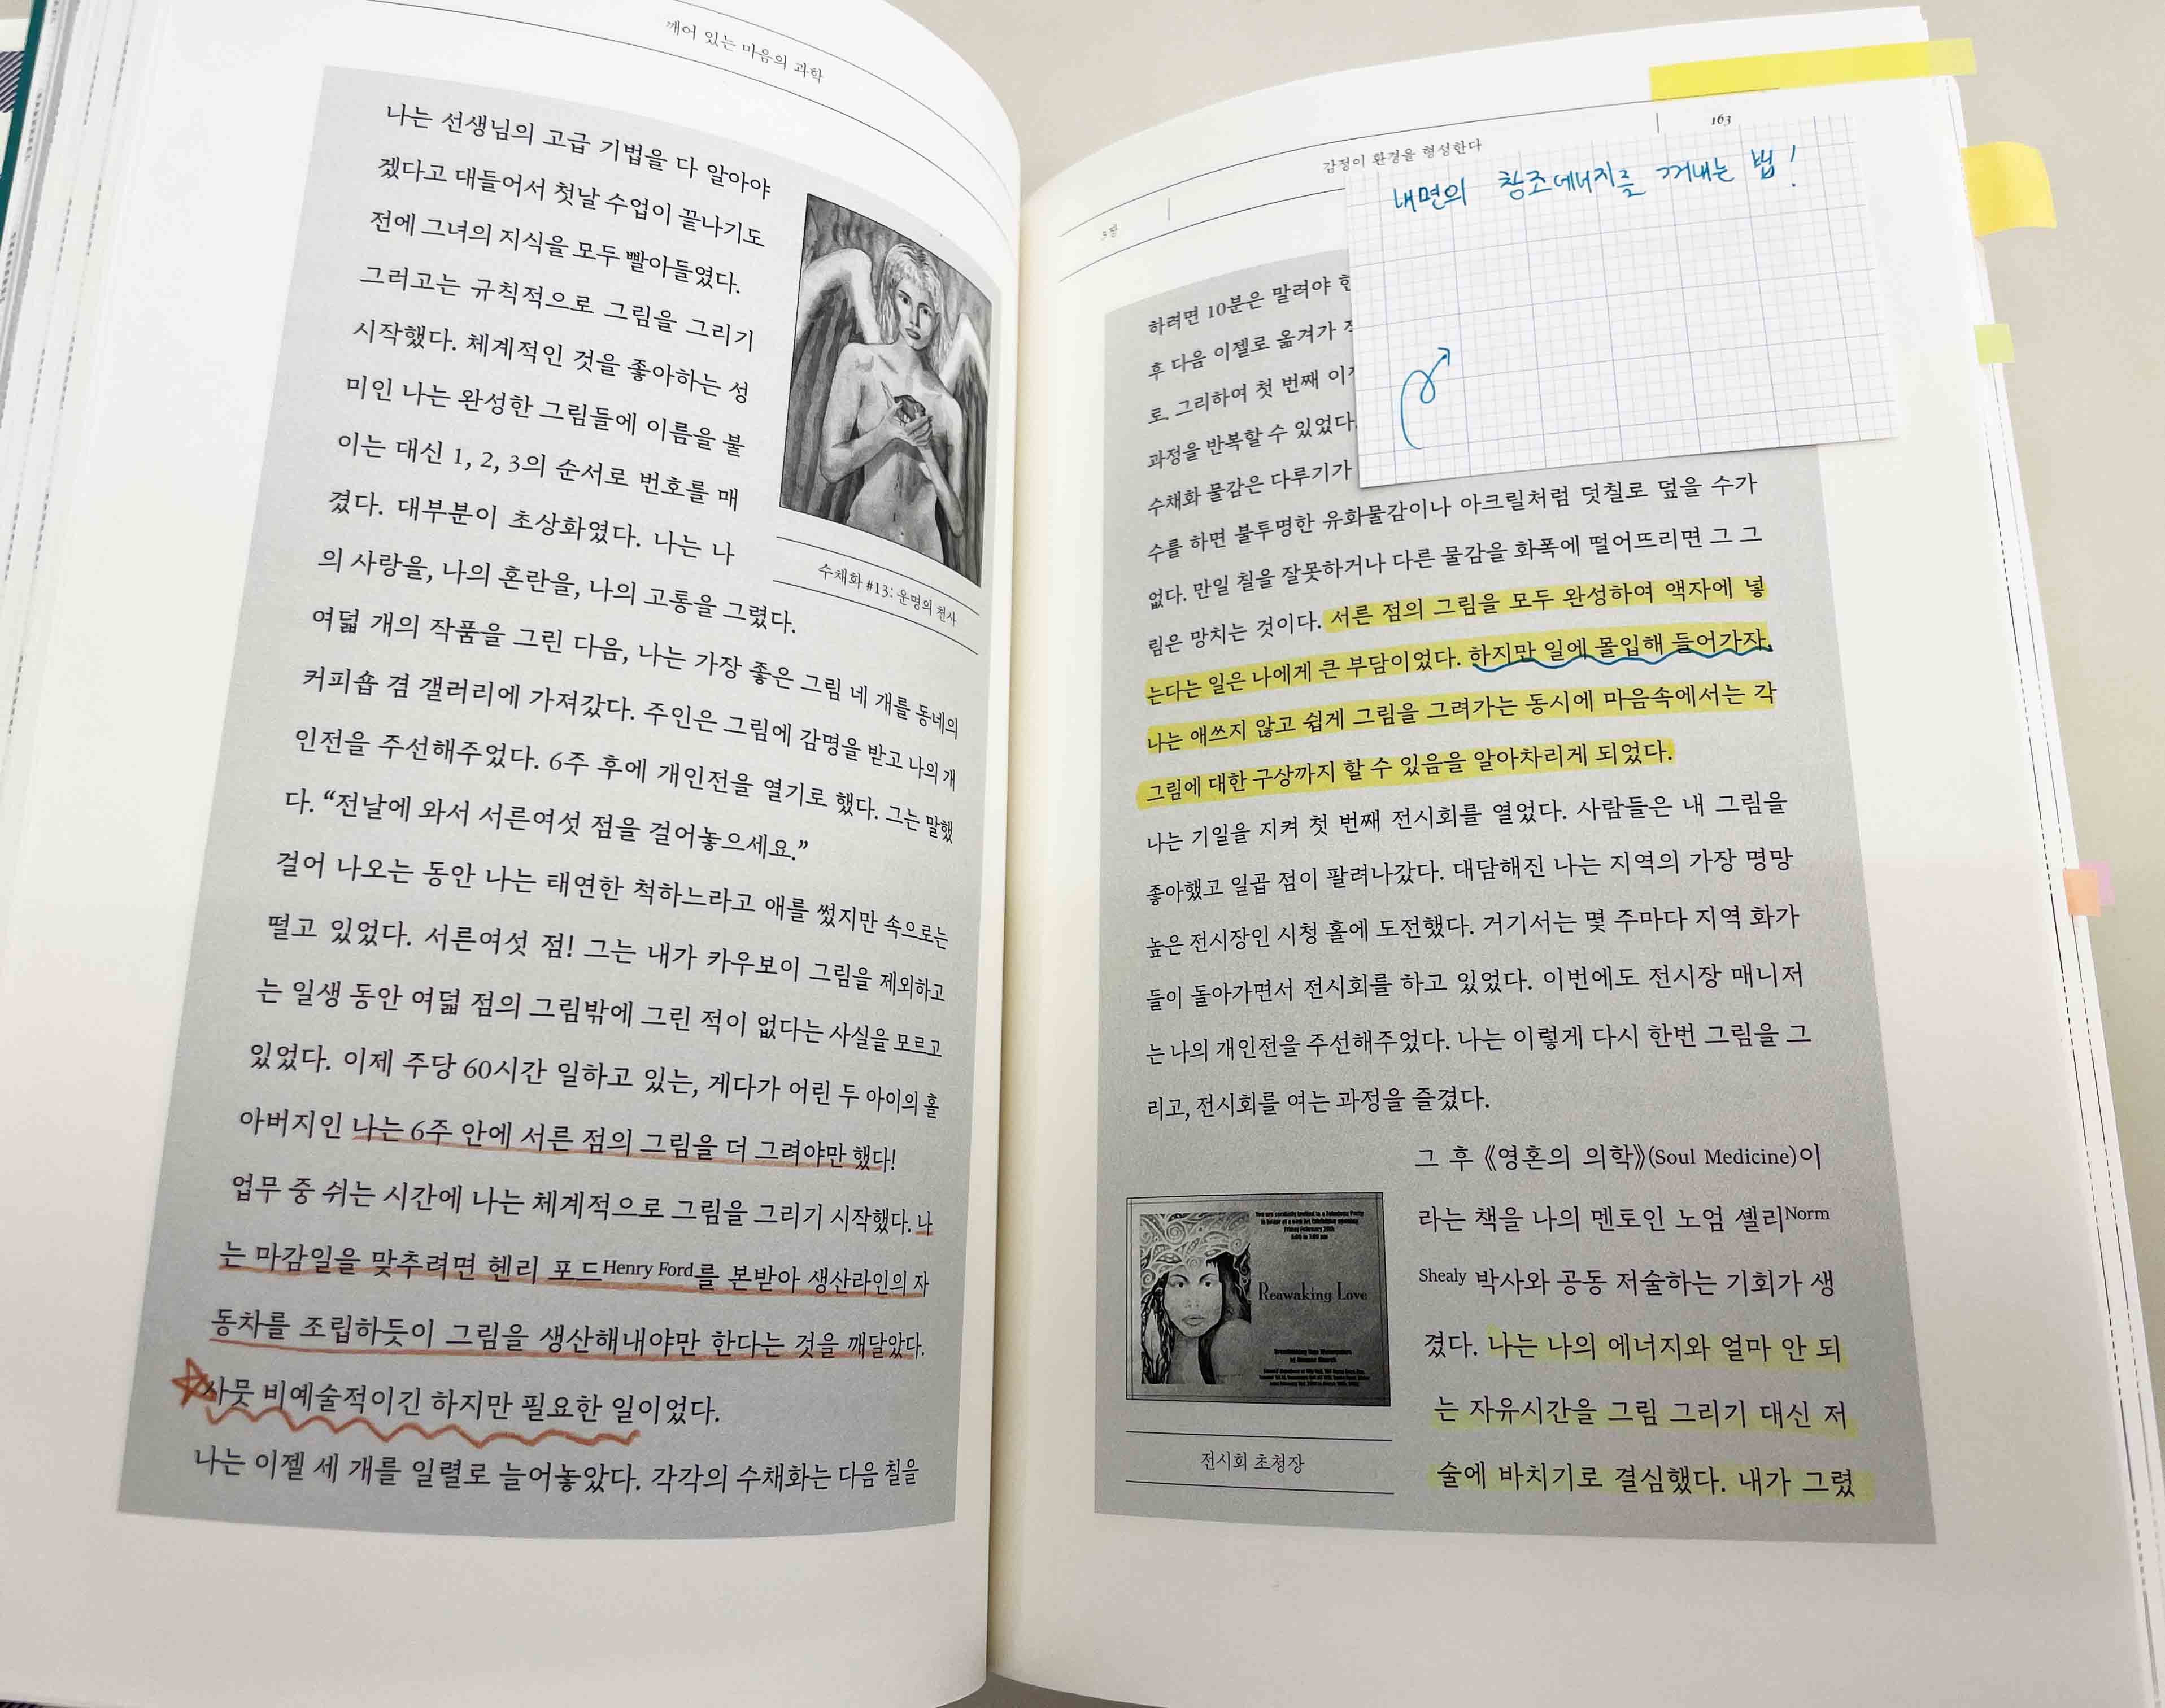 깨어 있는 마음의 과학
나는 선생님의 고급 기법을 다 알아야
겠다고 대들어서 첫날 수업이 끝나기도
전에 그녀의 지식을 모두 빨아들였다.
그러고는 규칙적으로 그림을 그리기
시작했다. 체계적인 것을 좋아하는 성
미인 나는 완성한 그림들에 이름을 붙
이는 대신 1, 2, 3의 순서로 번호를 매
겼다. 대부분이 초상화였다. 나는 나
의 사랑을, 나의 혼란을, 나의 고통을 그렸다.
수채화 #13: 운명의 천사
여덟 개의 작품을 그린 다음, 나는 가장 좋은 그림 네 개를 동네의
커피숍 겸 갤러리에 가져갔다. 주인은 그림에 감명을 받고 나의 개
인전을 주선해주었다. 6주 후에 개인전을 열기로 했다. 그는 말했
다. “전날에 와서 서른여섯 점을 걸어놓으세요.”
걸어 나오는 동안 나는 태연한 척하느라고 애를 썼지만 속으로는
떨고 있었다. 서른여섯 점! 그는 내가 카우보이 그림을 제외하고
는 일생 동안 여덟 점의 그림밖에 그린 적이 없다는 사실을 모르고
있었다. 이제 주당 60시간 일하고 있는, 게다가 어린 두 아이의 홀
아버지인 나는 6주 안에 서른 점의 그림을 더 그려야만 했다!
업무 중 쉬는 시간에 나는 체계적으로 그림을 그리기 시작했다. 나
는 마감일을 맞추려면 헨리 포드Henry Ford를 본받아 생산라인의 자
동차를 조립하듯이 그림을 생산해내야만 한다는 것을 깨달았다.
사뭇 비예술적이긴 하지만 필요한 일이었다.
나는 이젤 세 개를 일렬로 늘어놓았다. 각각의 수채화는 다음 칠을
3장
감정이 환경을 형성한다
163
내면의 창조에너지를 꺼내는 법!
하려면 10분은 말려야
후 다음 이젤로 옮겨가
로. 그리하여 첫 번째
과정을 반복할 수 있었다.
수채화 물감은 다루기가
수를 하면 불투명한 유화물감이나 아크릴처럼 덧칠로 덮을 수가
없다. 만일 칠을 잘못하거나 다른 물감을 화폭에 떨어뜨리면 그 그
림은 망치는 것이다. 서른 점의 그림을 모두 완성하여 액자에 넣
는다는 일은 나에게 큰 부담이었다. 하지만 일에 몰입해 들어가자,
나는 애쓰지 않고 쉽게 그림을 그려가는 동시에 마음속에서는 각
그림에 대한 구상까지 할 수 있음을 알아차리게 되었다.
나는 기일을 지켜 첫 번째 전시회를 열었다. 사람들은 내 그림을
좋아했고 일곱 점이 팔려나갔다. 대담해진 나는 지역의 가장 명망
높은 전시장인 시청 홀에 도전했다. 거기서는 몇 주마다 지역 화가
들이 돌아가면서 전시회를 하고 있었다. 이번에도 전시장 매니저
는 나의 개인전을 주선해주었다. 나는 이렇게 다시 한번 그림을 그
리고, 전시회를 여는 과정을 즐겼다.
그 후 《영혼의 의학》(Soul Medicine)이
라는 책을 나의 멘토인 노엄 셸리Norm
Shealy 박사와 공동 저술하는 기회가 생
겼다. 나는 나의 에너지와 얼마 안 되
는 자유시간을 그림 그리기 대신 저
술에 바치기로 결심했다. 내가 그렸
Reawaking Love
전시회 초청장